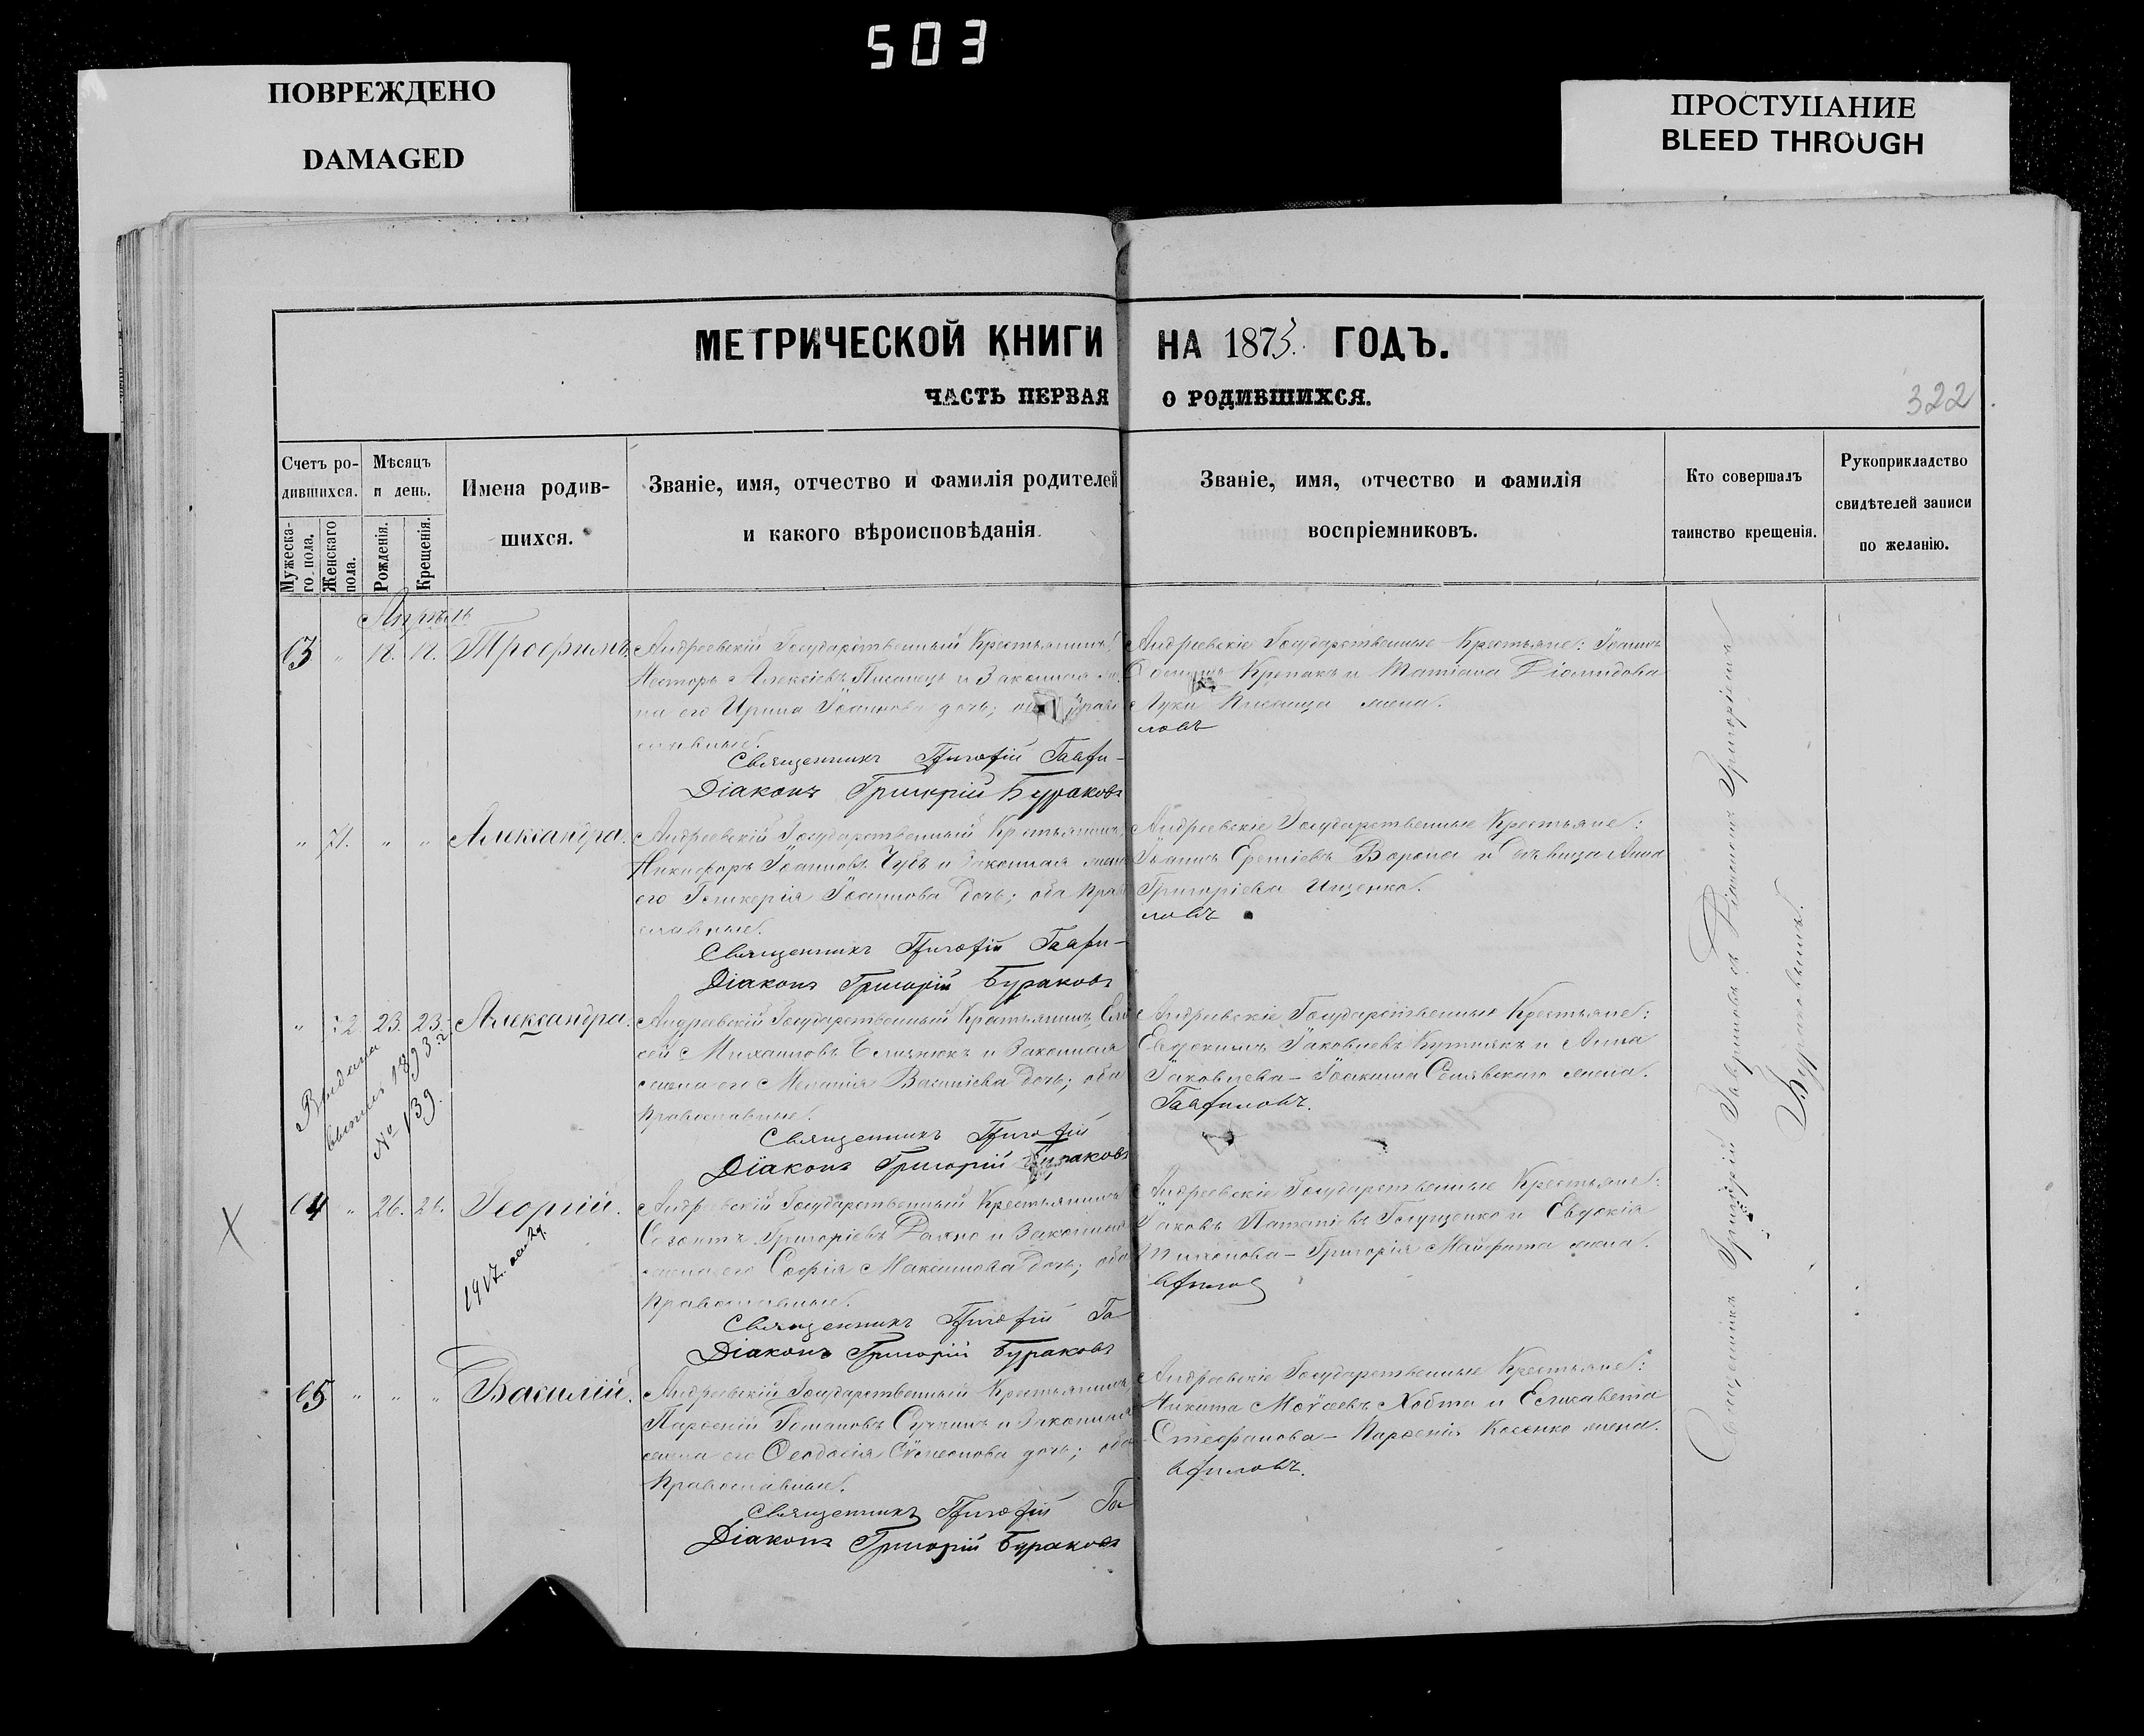 503
ПОВРЕЖДЕНО
DAMAGED
ПРОСТУПАНИЕ
BLEED THROUGH
МЕТРИЧЕСКОЙ КНИГИ НА 1873 ГОДЪ.
ЧАСТЬ ПЕРВАЯ О РОДИВШИХСЯ.
322
Счетъ ро-
дившихся.
Мужеска-
го пола.
Женскаго
пола.
Мѣсяцъ
и день.
Рожденія.
Крещенія.
Имена родив-
шихся.
Званіе, имя, отчество и фамилія родителей
и какого вѣроисповѣданія.
Званіе, имя, отчество и фамилія
воспріемниковъ.
Кто совершалъ
таинство крещенія.
Рукоприкладство
свидѣтелей записи
по желанію.
Апрѣль
63 " Трофимъ.
Андреевскій Государственный Крестьянинъ
Несторъ Алексіевъ Писанецъ и Законная
на его Ирина Іоаннова дочь;
славные.
Священникъ Григорій Гаври-
Діаконъ Григорій Бураковъ
Андреевскіе Государственные Крестьяне: Іоаннъ
Крепакъ и Татіана Діомидова
Луки жена.
ловъ
" 71. " " Александра.
Андреевскій Государственный Крестьянинъ
Никифоръ Іоанновъ Чубъ и Законная жена
его Гликерія Іоаннова дочь; оба Прав
славные.
Священникъ Григорій Гаври-
Діаконъ Григорій Бураковъ
Андреевскіе Государственные Крестьяне:
Іоаннъ Ерміевъ Ворона и дѣвица Анна
Григоріева Ищенко.
ловъ
" 72 23. 23. Александра.
Выдана
1893 г.
№ 139.
Андреевскій Государственный Крестьянинъ Ели
сей Михаиловъ и Законная
жена его Меланія Василіева дочь; оба
Православные.
Священникъ Григорій
Діаконъ Григорій Бураковъ
Андреевскіе Государственные Крестьяне:
Евдокимъ Іаковлевъ и Анна
Іаковлева – Іоакима жена.
Гавриловъ.
Х
64 " 26. 26. Георгій.
1917
Андреевскій Государственный Крестьянинъ
Созонтъ Григоріевъ и Законная
жена его Софія Максимова дочь; оба
Православные.
Священникъ Григорій Га
Діаконъ Григорій Бураковъ
Андреевскіе Государственные Крестьяне:
Іаковъ Глущенко и Евдокія
Григорія жена.
врилов
65 " " " Василій.
Андреевскій Государственный Крестьянинъ
Парѳеній Романовъ и Законная
жена его Ѳеодосія дочь; оба
Православные.
Священникъ Григорій Га
Діаконъ Григорій Бураковъ
Андреевскіе Государственные Крестьяне:
Никита Моѵсеевъ Хобта и Елисавета
Стефанова – Парѳенія Косенко жена.
вриловъ.
Священникъ Григорій Гавриловъ съ Діакономъ Григоріемъ
Бураковымъ.